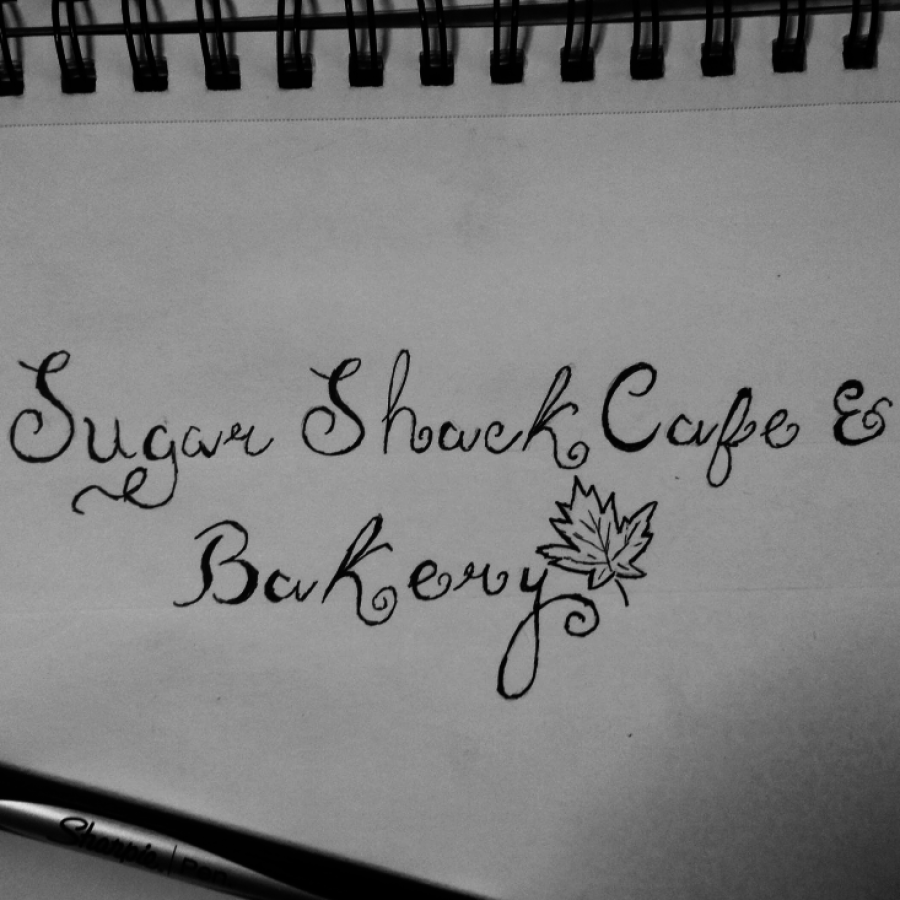 Sugar Shack Cafe &
Bakery
Sharpie. | Pen.